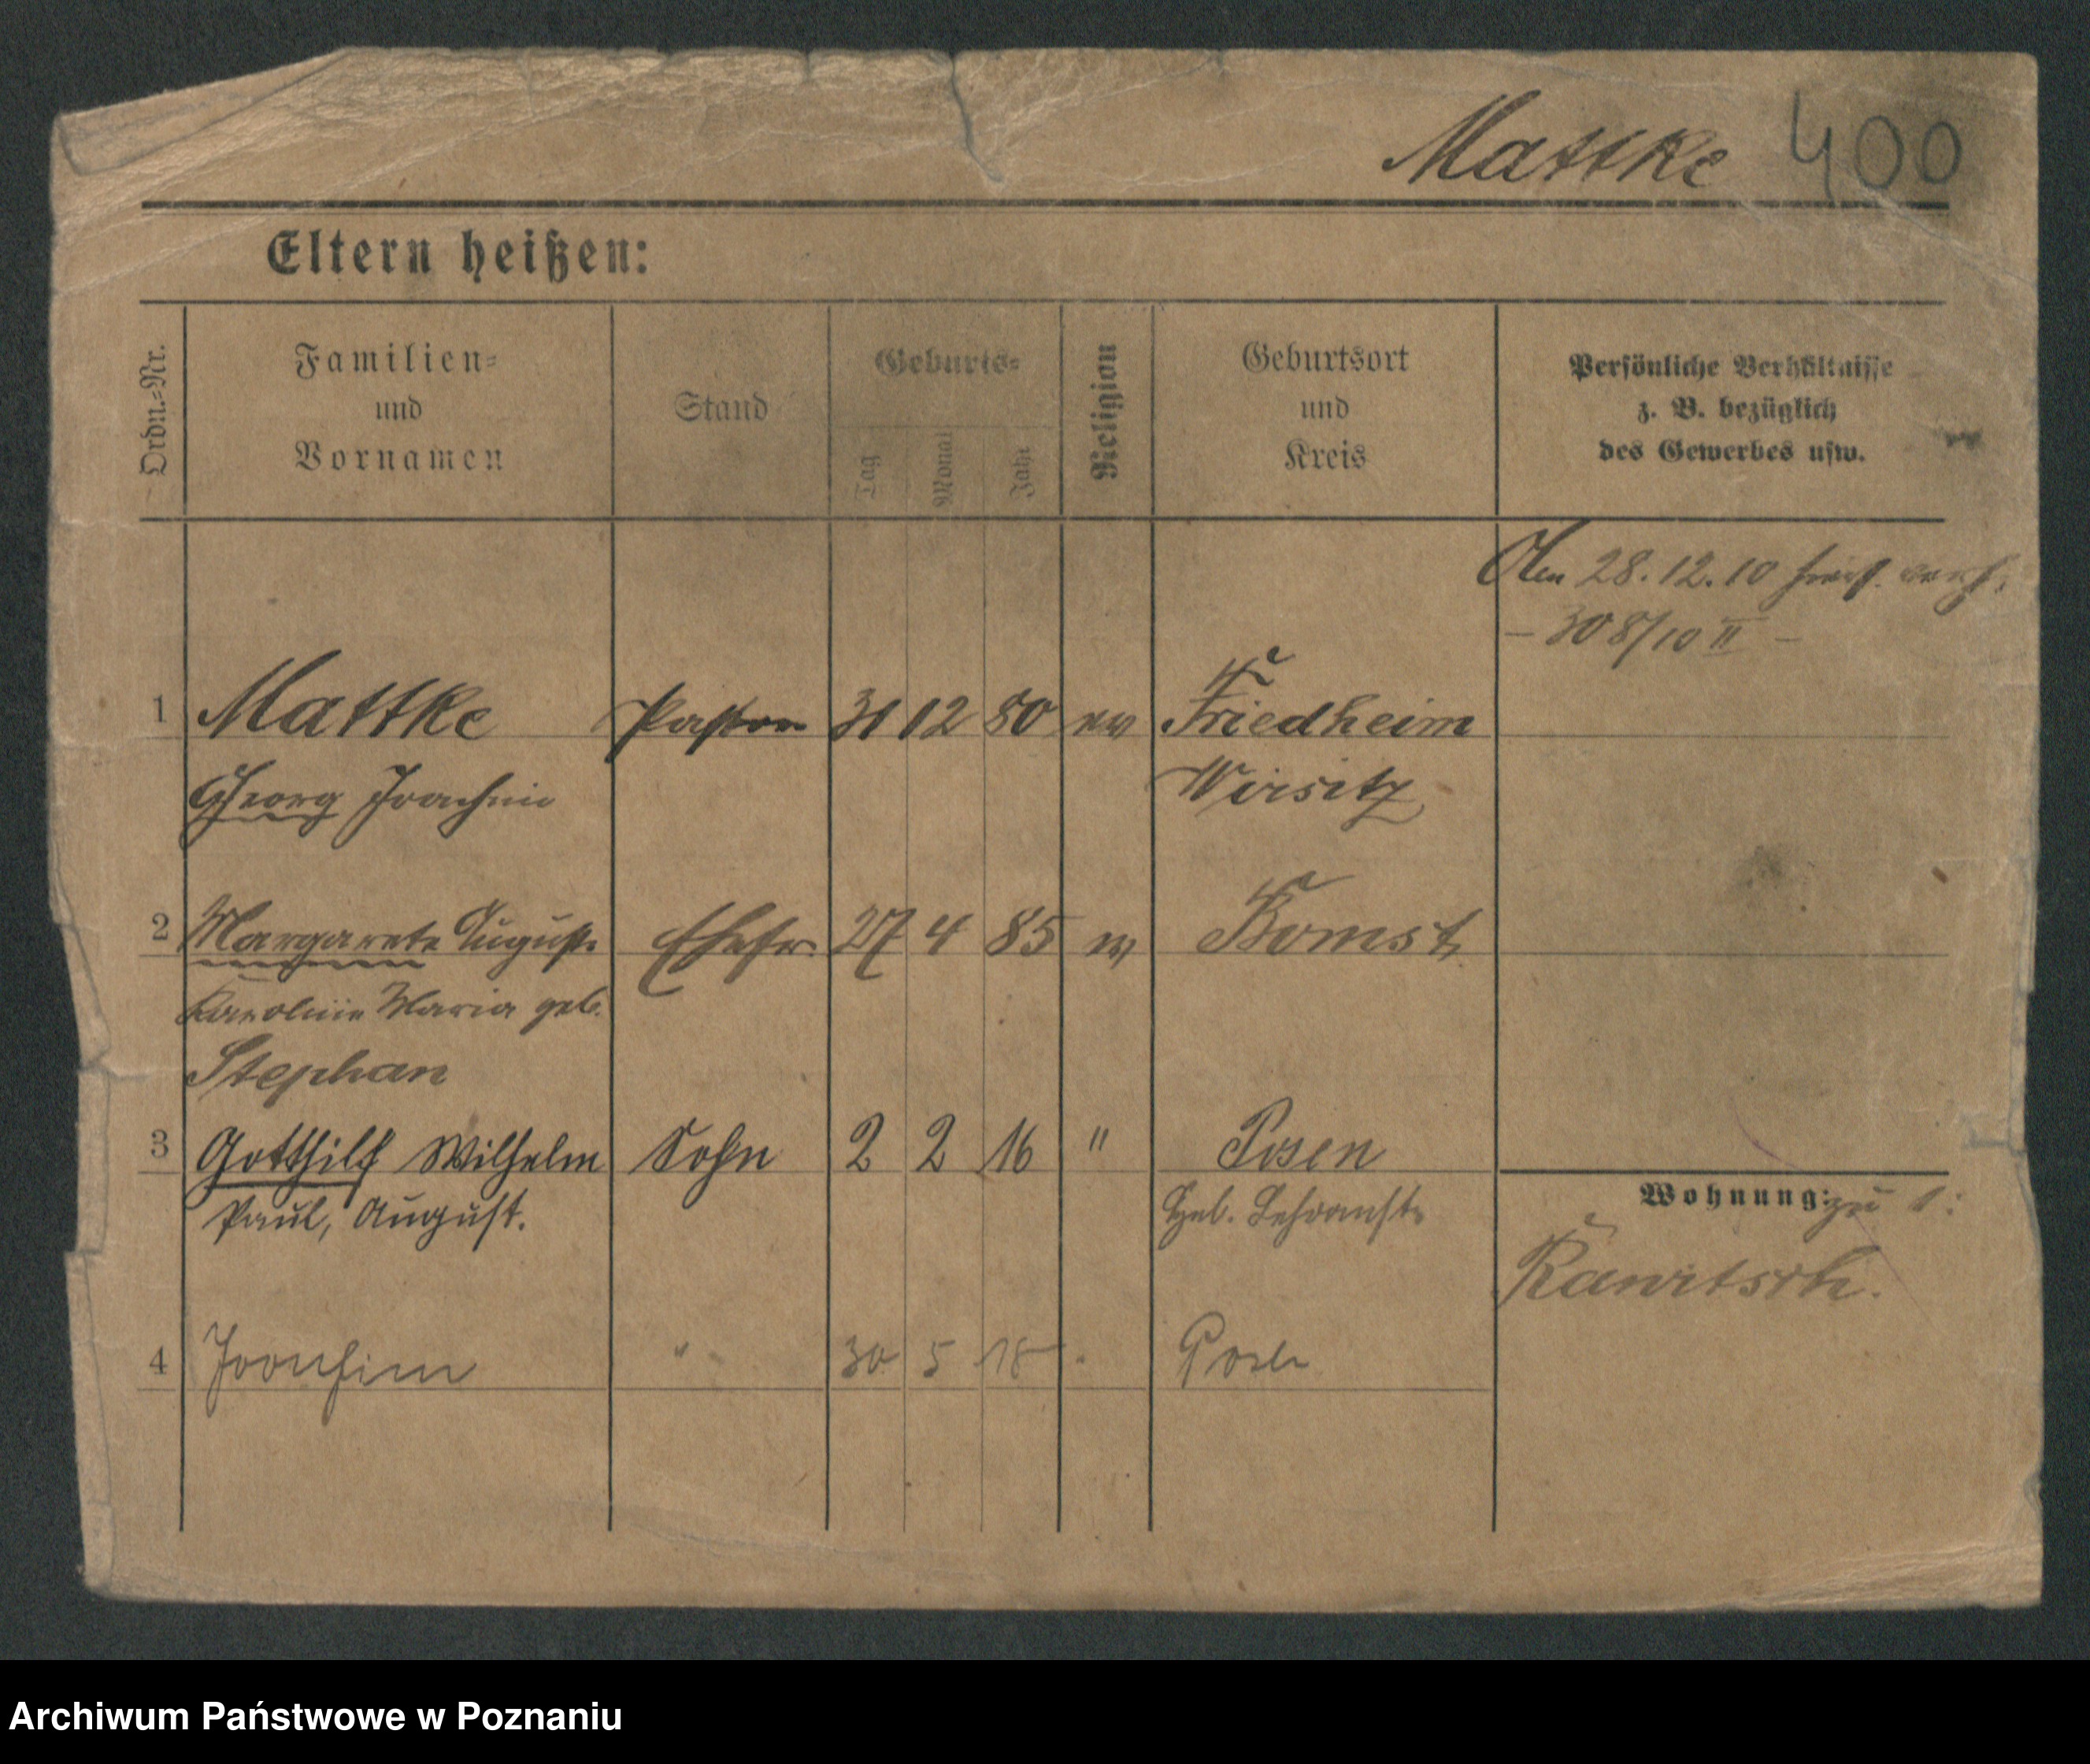 Mattke 400
Eltern heißen:
Ordn.-Nr.
Familien-
und
Vornamen
Stand
Geburts-
Tag
Monat
Jahr
Religion
Geburtsort
und
Kreis
Persönliche Verhältnisse
z. B. bezüglich
des Gewerbes usw.
28.12.10
– 308/10 II –
1 Mattke Pastor 31 12 80 ev Friedheim
Georg Joachim Wirsitz
2 Margarete Auguste Ehefr. 27 4 85 ev Bomst
Karoline Maria geb.
Stephan
3 Gotthilf Wilhelm Sohn 2 2 16 " Posen
Paul, August. Heb. Lehranst.
Wohnung: zu 1:
Rawitsch.
4 Joachim " 30 5 18 " Posen
Archiwum Państwowe w Poznaniu